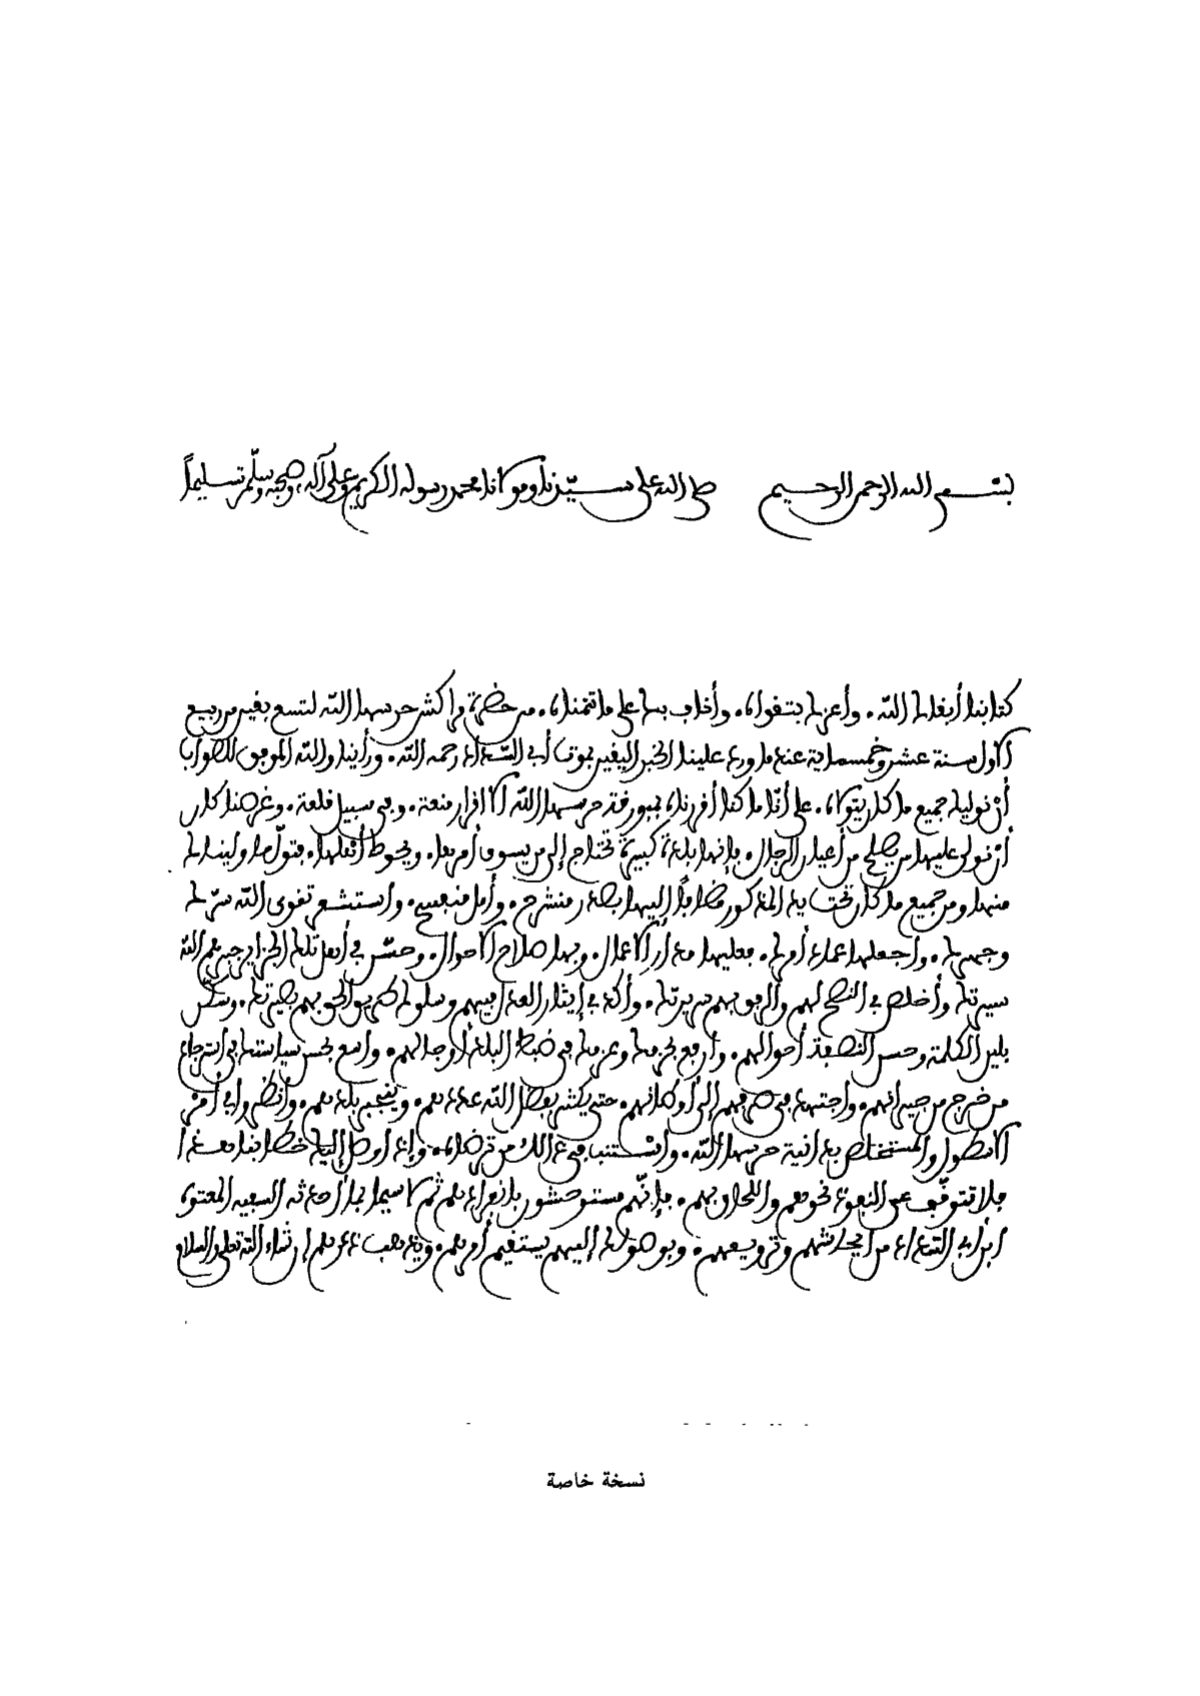 بسم الله الرحمن الرحيم صلى الله على سيّدنا ومولانا محمد رسوله الكريم وعلى آله وصحبه وسلّم تسليماً
كتابنا أبقاك الله. وأعزك بتقواه. وأجراك على ما قدمناه. من حضرة مراكش حرسها الله لتسع بقين من ربيع
الأول سنة عشر وخمسماية عندما ورد علينا الخبر اليقين بوفاة أبي السّداد رحمه الله. ورأينا والله الموفق للصواب
أن نوليك جميع ما كان يتولاه. على أنّا ما كنا أفردناه بميورقة حرسها الله إلا إفراد منعة. وفي سبيل قلعة. وغرضنا كان
أن نولي عليها من يصلح من أعيان الرجال. فإنها بلدة كبيرة تحتاج إلى من يسوق أمرها. ويحوط أهلها. فتولّ ما وليناك
منها ومن جميع ما كان تحت يد المذكور إليها بصدر منشرح. وأمل منفسح. واستشعر تقوى الله سرّك
وجهرك. واجعلها عماد أمرك. فعليها مدار الأعمال. وبها صلاح الأحوال. وحسّن في أهل تلك الجزاير جبرهم الله
سيرتك وأخلص في النصح لهم والرفق بهم سريرتك. وأكد في إيثار العدل فيهم وسلوك طريق الحق بهم بصيرتك.
بلين الكلمة وحسن أحوالهم. وارفع بحزمك وعزمك في ضبط البلد أوجالهم. واسع بحسن سياستك في استرجاع
من خرج من جيرانهم. واجتهد في صرفهم إلى أوطانهم. حتى يكثر بفضل الله عددهم. بلدهم. وانظر في أمر
الأسطول والمستخلص بدانية حرسها الله. واستنب في ذلك من ترضاه. وإذا وصل إليك خطابنا هذا
فلا تتوقف عن النفوذ نحوهم واللحاق بهم. فإنّهم مستوحشون بانفرادهم ثم لا سيما بما أحدثه السفيه المعتوه
ابن أبي السّداد من إيحاشهم وترويعهم. وبوصولك إليهم يستقيم أمرهم. ويذهب ذعرهم إن شاء الله تعلى والسلام
نسخة خاصة